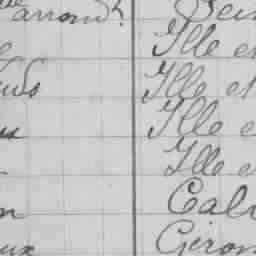 arrondt Sein
Ille e
Ille et
Ille e
Ille e
n Calv
ux Giron